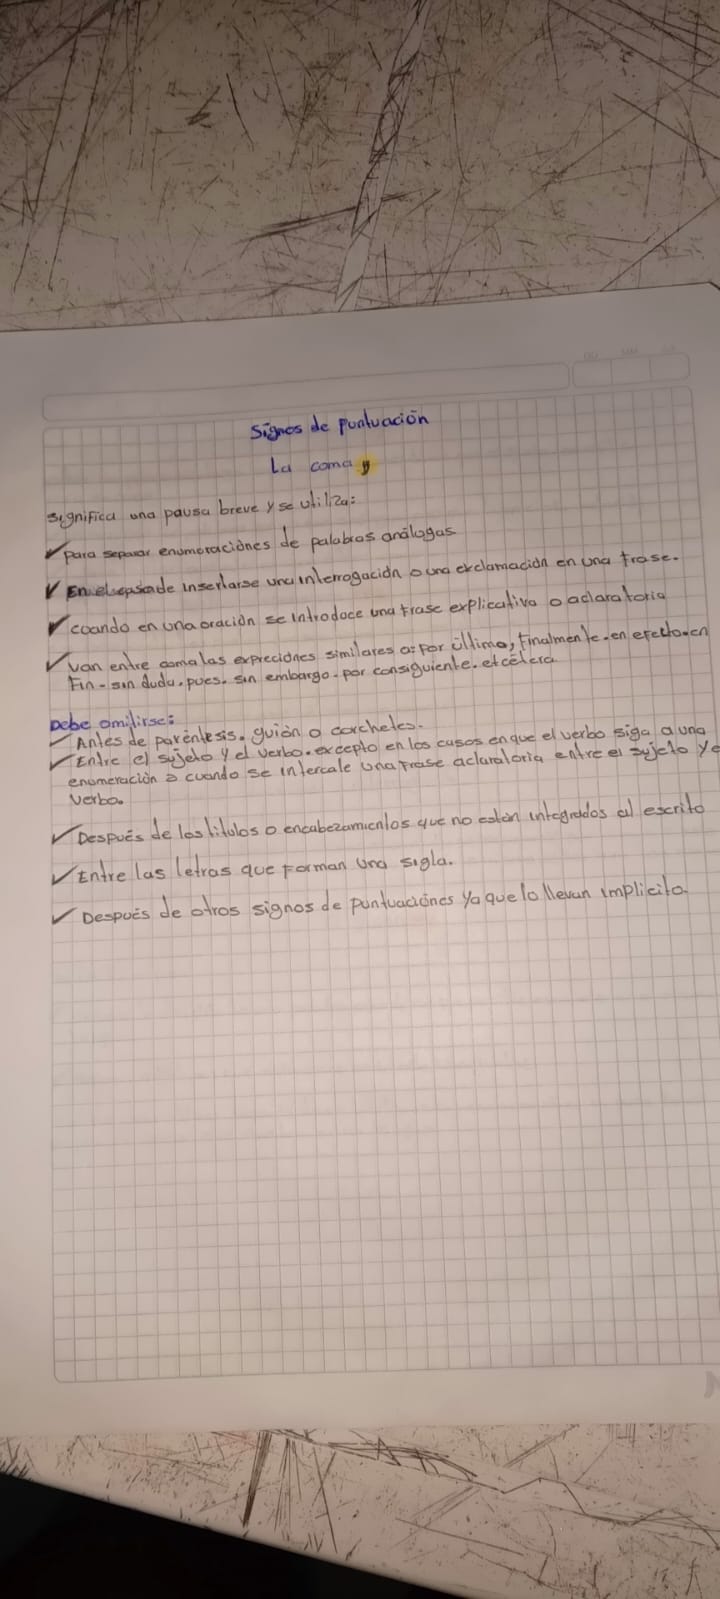 Signos de puntuación
La coma ,
Significa una pausa breve y se utiliza:
✓ Para separar enumeraciónes de palabras análogas
✓ En el caso de insertarse una interrogación o una exclamación en una frase.
✓ cuando en una oración se introduce una frase explicativa o aclaratoria
✓ van entre coma las expreciónes similares a: por último, finalmente. en efecto. en
Fin - sin duda. pues. sin embargo. por consiguiente. etcétera
Debe omitirse:
✓ Antes de paréntesis. guión o corchetes.
✓ Entre el sujeto y el verbo. excepto en los casos en que el verbo siga a una
enumeración o cuando se intercale una frase aclaratoria entre el sujeto y e
verbo.
✓ Después de los titulos o encabezamientos que no están integrados al escrito
✓ Entre las letras que forman una sigla.
✓ Después de otros signos de puntuaciónes ya que lo llevan implicito.